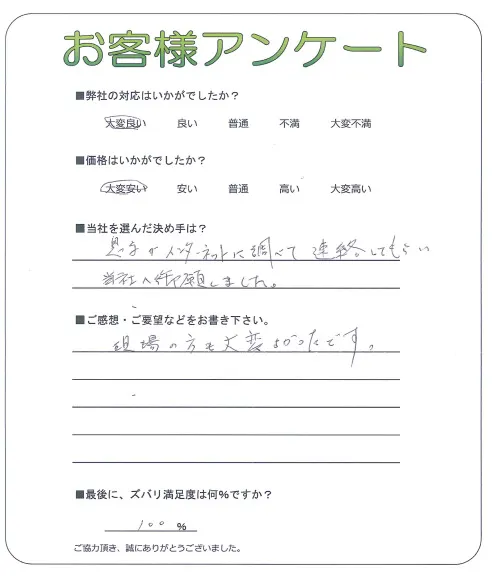 お客様アンケート
■弊社の対応はいかがでしたか？
大変良い 良い 普通 不満 大変不満
■価格はいかがでしたか？
大変安い 安い 普通 高い 大変高い
■当社を選んだ決め手は？
インターネットに調べて 連絡してもらい
当社へ御願しました。
■ご感想・ご要望などをお書き下さい。
現場の方も大変よかったです。
■最後に、ズバリ満足度は何％ですか？
100 ％
ご協力頂き、誠にありがとうございました。